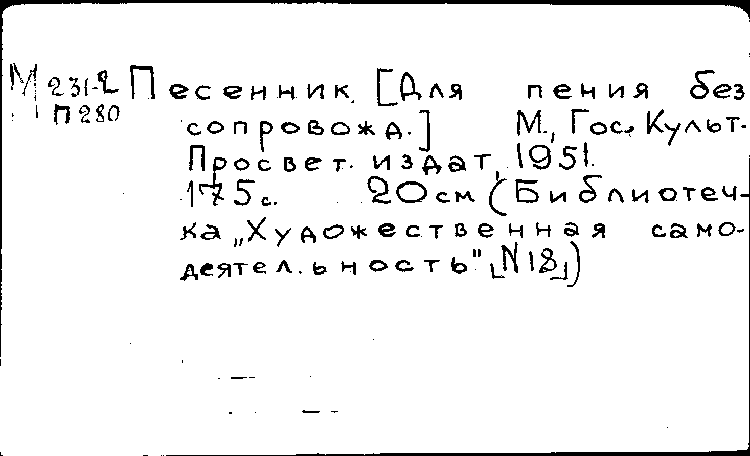 М 231-2 Песенник. [Для пения без
П 280 сопровожд.] М., Гос. Культ.
Просвет. издат, 1951.
175 с. 20 см (Библиотеч-
ка „Художественная само-
деятел.ьность" N 18)